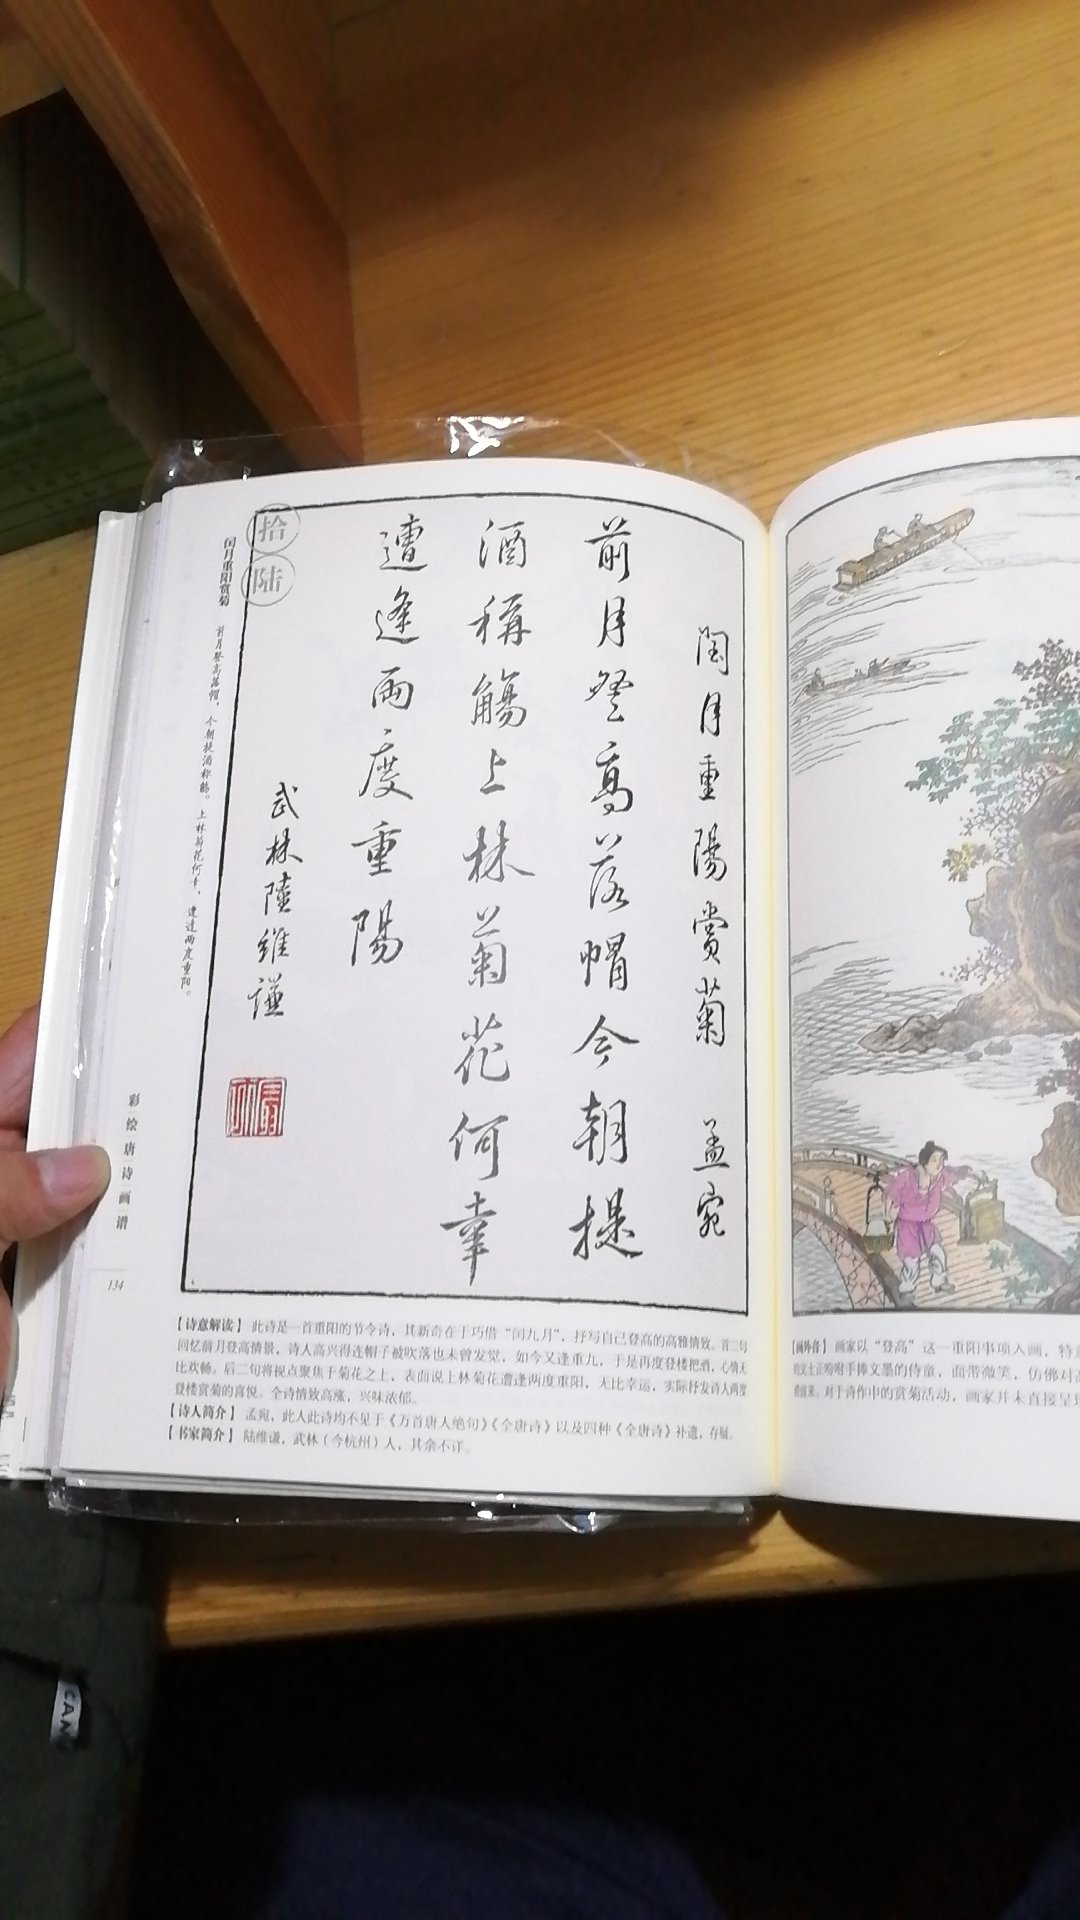 閏月重陽賞菊 孟宛
前月登高落帽今朝提
酒稱觴上林菊花何幸
遭逢兩度重陽
武林陸維謙
拾陆
闰月重阳赏菊 前月登高落帽，今朝提酒称觞。上林菊花何幸，遭逢两度重阳。
彩绘唐诗画谱
134
【诗意解读】此诗是一首重阳的节令诗，其新奇在于巧借“闰九月”，抒写自己登高的高雅情致。首二句
回忆前月登高情景，诗人高兴得连帽子被吹落也未曾发觉，如今又逢重九，于是再度登楼把酒，心情无
比欢畅。后二句将视点聚焦于菊花之上，表面说上林菊花遭逢两度重阳，无比幸运，实际抒发诗人两度
登楼赏菊的喜悦。全诗情致高涨，兴味浓郁。
【诗人简介】孟宛，此人此诗均不见于《万首唐人绝句》《全唐诗》以及四种《全唐诗》补遗，存疑。
【书家简介】陆维谦，武林（今杭州）人，其余不详。
【画外音】画家以“登高”这一重阳事项入画，特意
的文士正吩咐手捧文墨的侍童，面带微笑，仿佛对
前来。对于诗作中的赏菊活动，画家并未直接呈现
CAN